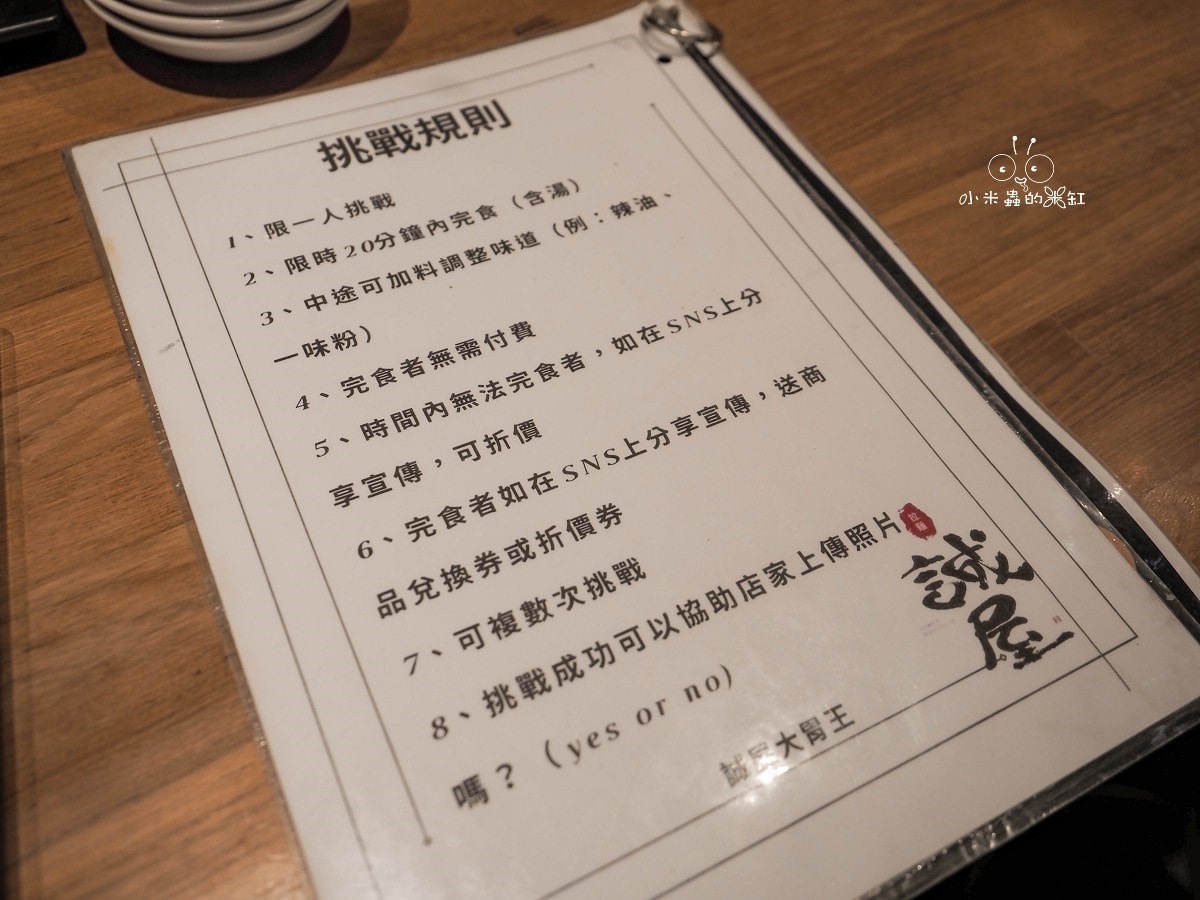 挑戰規則
1、限一人挑戰
2、限時20分鐘內完食（含湯）
3、中途可加料調整味道（例：辣油、
一味粉）
4、完食者無需付費
5、時間內無法完食者，如在SNS上分
享宣傳，可折價
6、完食者如在SNS上分享宣傳，送商
品兌換券或折價券
7、可複數次挑戰
8、挑戰成功可以協助店家上傳照片
嗎？（yes or no）
誠屋大胃王
拉麵
誠屋
小米蟲的米缸